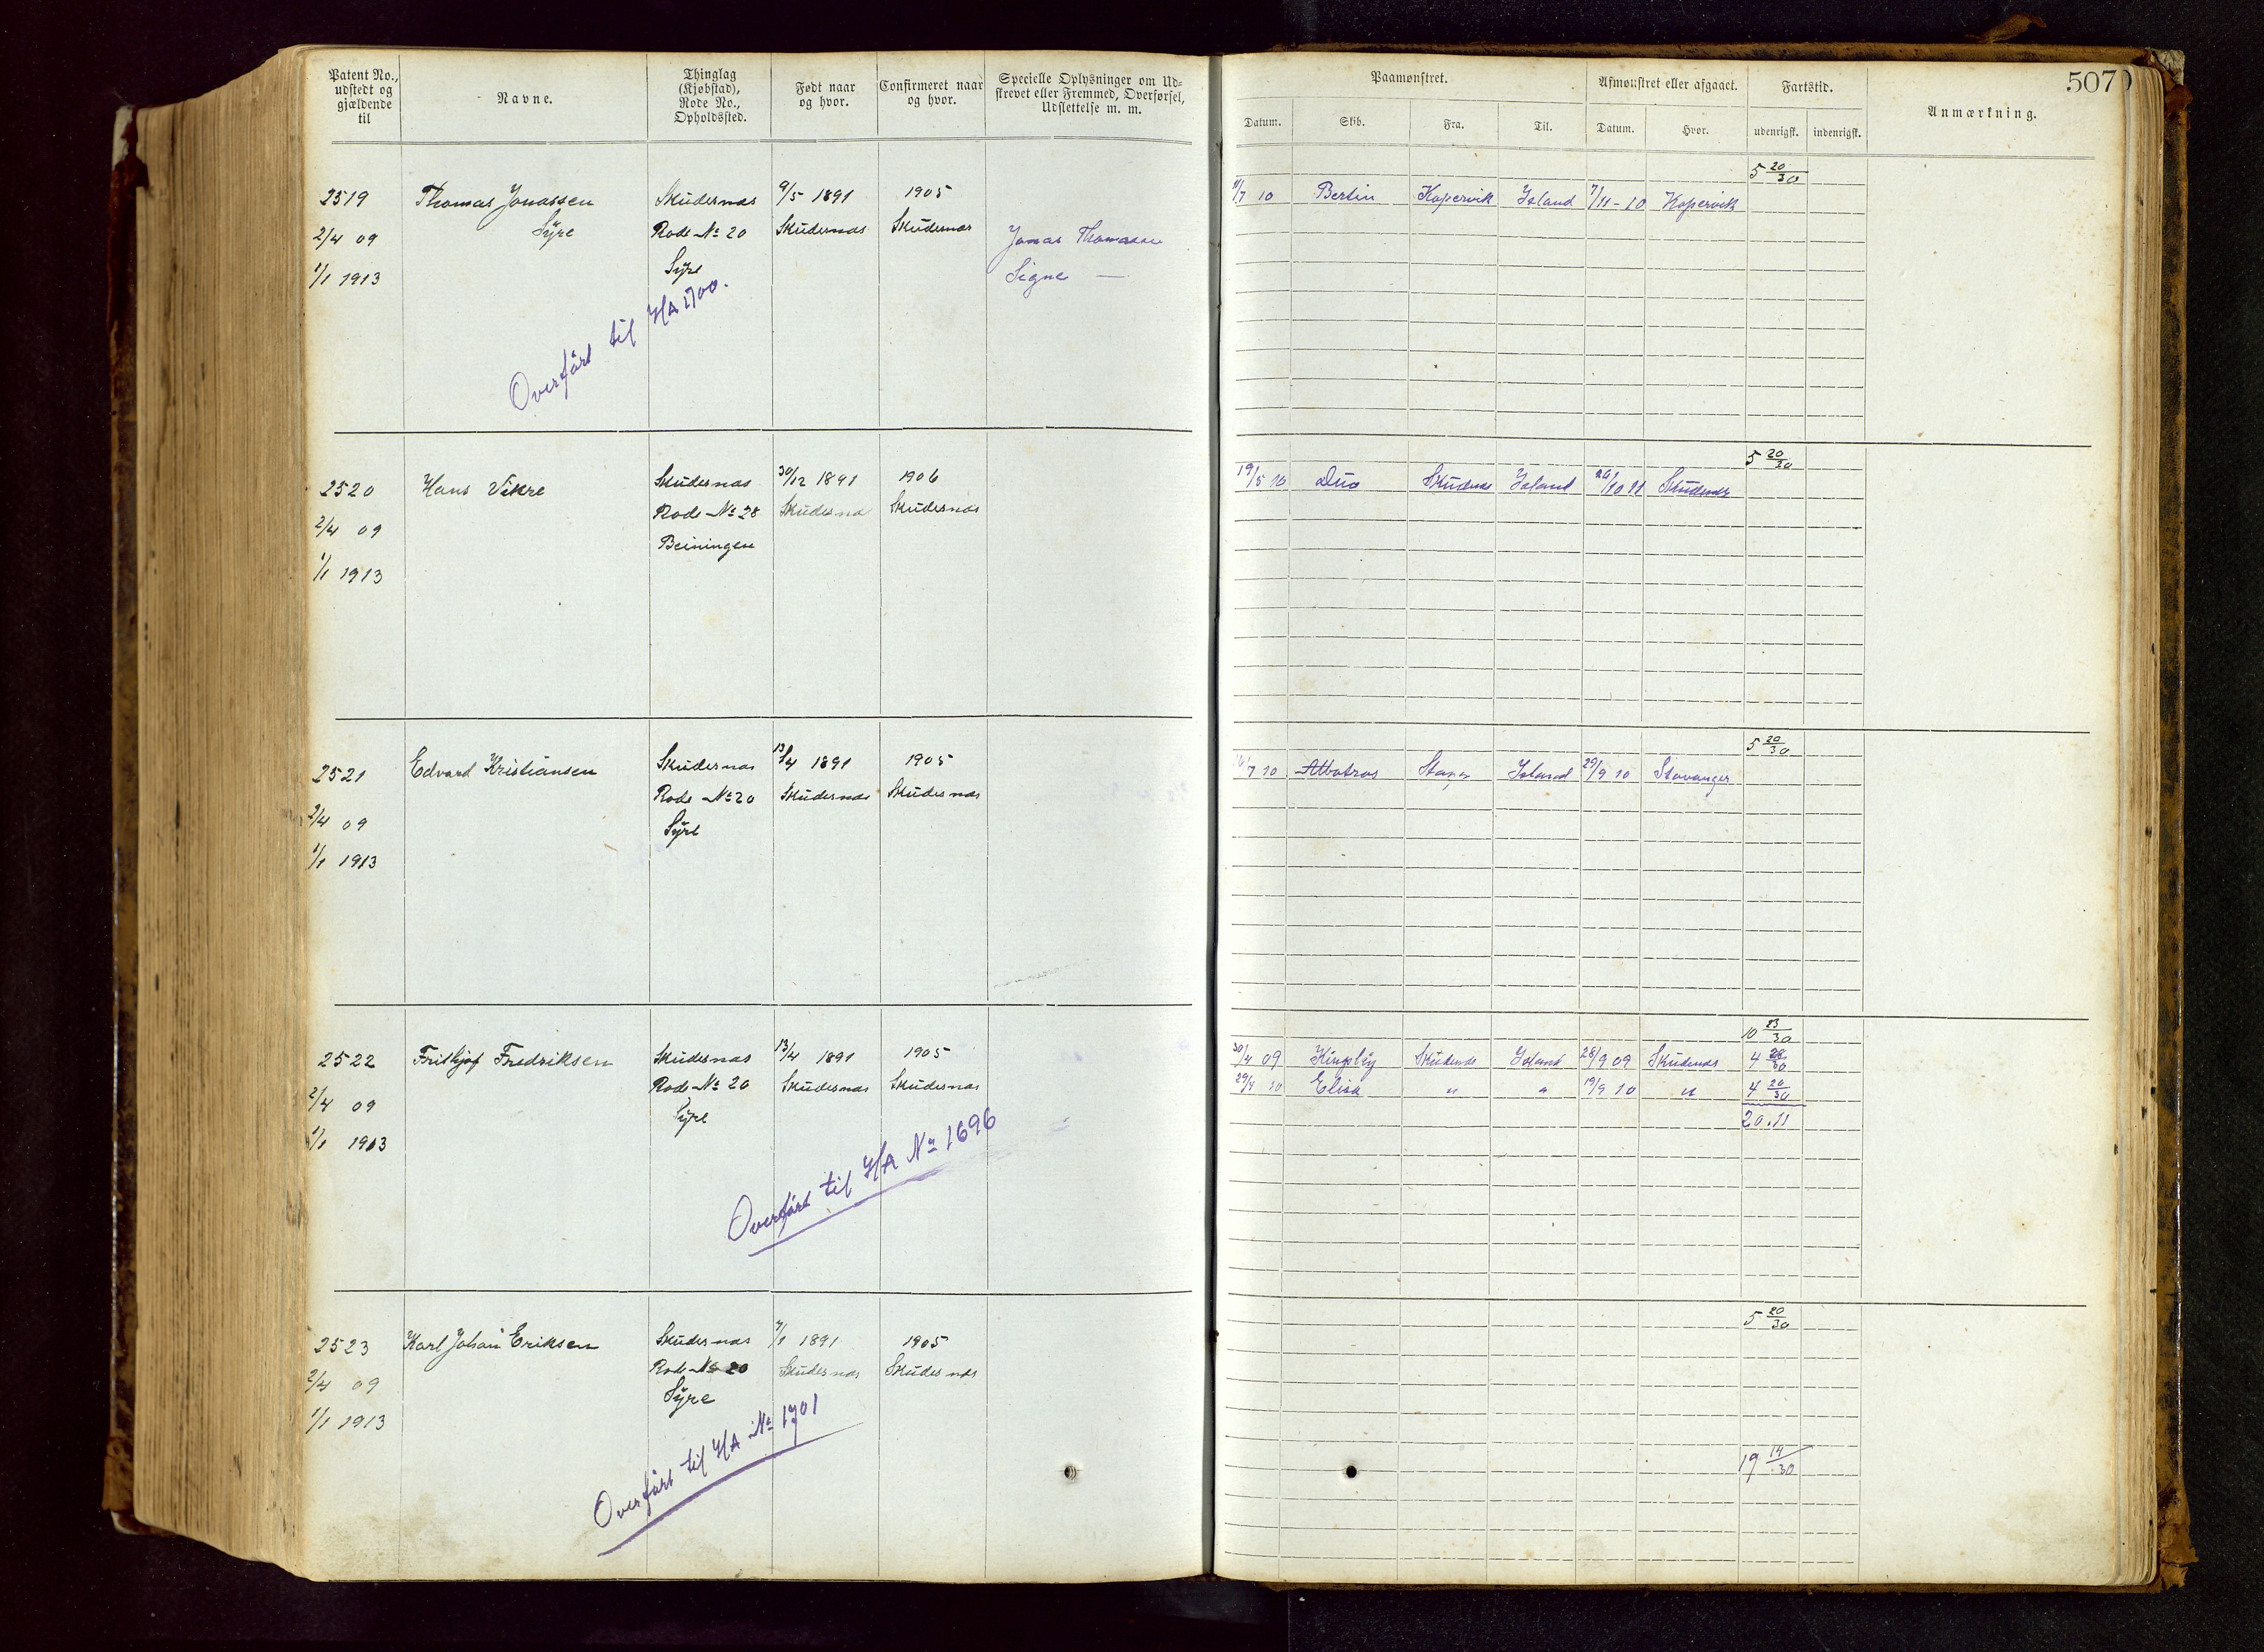 Patent No.,
udstedt og
gjældende
til
Navne.
Thinglag
(Kjøbstad),
Rode No.,
Opholdssted.
Født naar
og hvor.
Confirmeret naar
og hvor.
Specielle Oplysninger om Ud-
skrevet eller Fremmed, Overførsel,
Udslettelse m. m.
Paamønstret.
Afmønstret eller afgaaet.
Fartstid.
Anmærkning.
507
Datum.
Skib.
Fra.
Til.
Datum.
Hvor.
udenrigsk.
indenrigsk.
5 20/30
2519 Thomas Jonassen Skudesnæs 9/5 1891 1905
2/4 09 Syre Rode No 20 Skudesnæs Skudesnæs
1/1 1913 Syre
Jonas Thomassen
Signe —
Overført til H/A 1700.
11/7 10 Bertin Kopervik Island 7/11-10 Kopervik
5 20/30
2520 Hans Vikre Skudesnæs 30/12 1891 1906
2/4 09 Rode No 28 Skudesnæs Skudesnæs
1/1 1913 Beiningen
19/5 10 Duo Skudenæs Island 26/10 11 Skudenæs
5 20/30
2521 Edvard Kristiansen Skudesnæs 13/4 1891 1905
2/4 09 Rode No 20 Skudesnæs Skudesnæs
1/1 1913 Syre
7 10 Albatros Island 29/9 10 Stavanger
10 23/30
2522 Frithjof Fredriksen Skudesnæs 13/4 1891 1905
2/4 09 Rode No 20 Skudesnæs Skudesnæs
1/1 1913 Syre
Overført til H/A No 1696
30/4 09 Skudenæs Island 28/9 09 Skudenæs 4 28/30
29/4 10 Elisa " " 19/9 10 " 4 20/30
20.11
5 20/30
2523 Karl Johan Eriksen Skudesnæs 7/1 1891 1905
2/4 09 Rode No 20 Skudesnæs Skudesnæs
1/1 1913 Syre
Overført til H/A No 1701
19 14/30